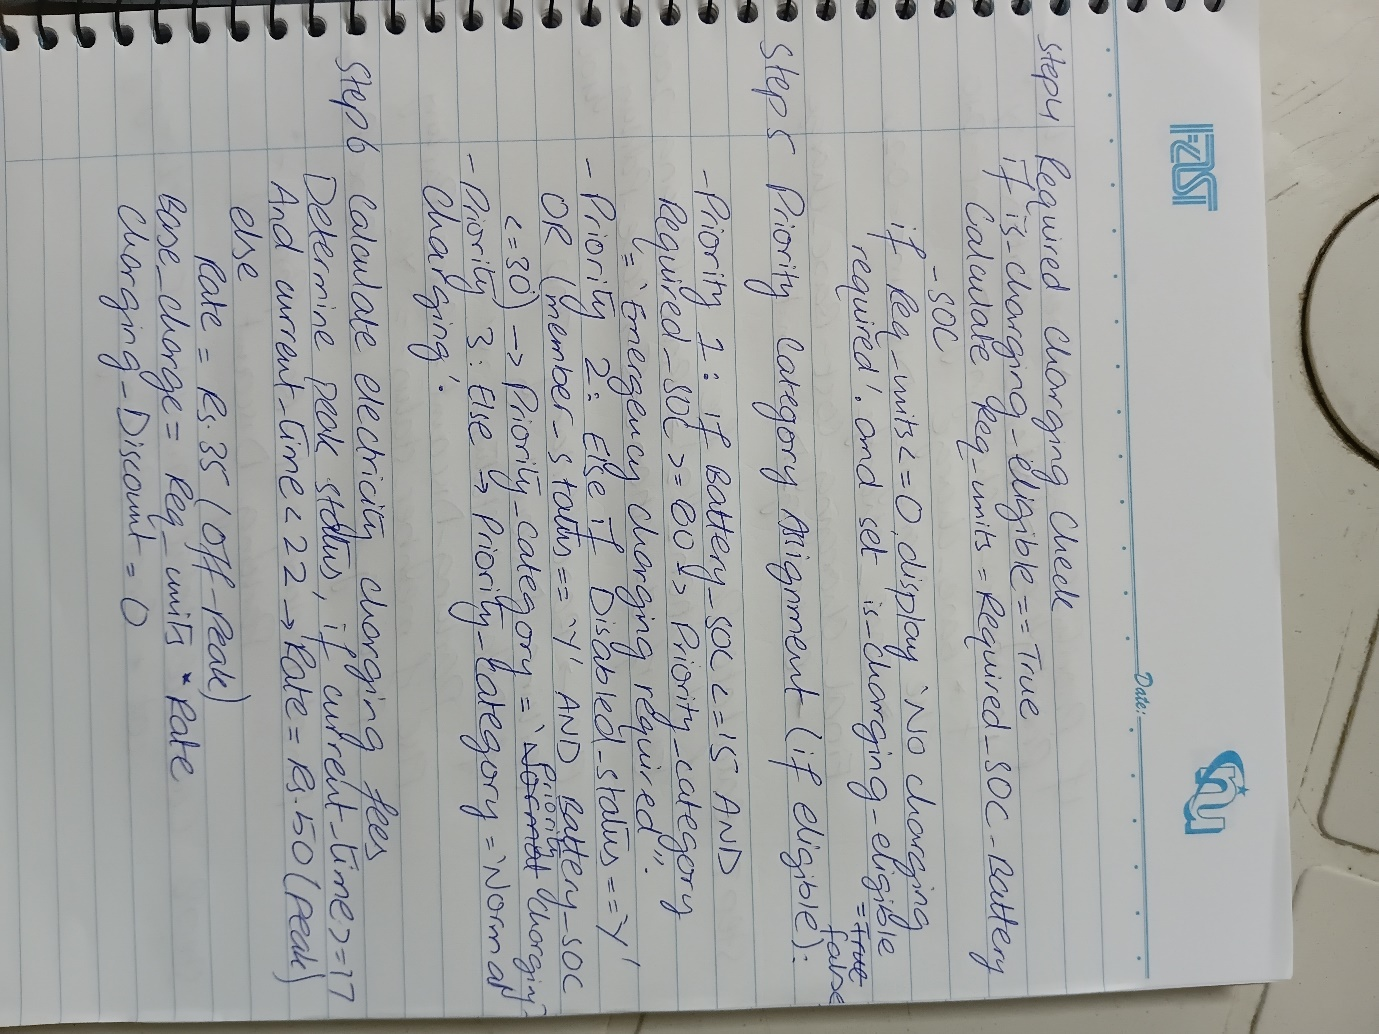 FAST
Date:
Step4 Required Charging Check
if is_charging_eligible == True
Calculate Req_units = Required_SOC - Battery
- SOC
if Req_units <= 0, display 'No charging
required'. and set is_charging_eligible
= True
false
Step 5 Priority Category Assignment (if eligible):
- Priority 1: if Battery_SOC <= 15 AND
Required_SOC >= 80 → Priority_category
= 'Emergency charging required'.
- Priority 2: Else if Disabled_status == 'Y'
OR (member_status == 'Y' AND Battery_SOC
<= 30) → Priority_category = 'Normal Charging'
Priority
- Priority 3: Else → Priority_Category = 'Normal
Charging'.
Step 6 Calculate electricity charging fees
Determine peak status, if current_time >= 17
And current_time < 22 → Rate = Rs. 50 (peak)
else
Rate = Rs. 35 (Off-Peak)
Base_charge = Req_units * Rate
Charging_Discount = 0